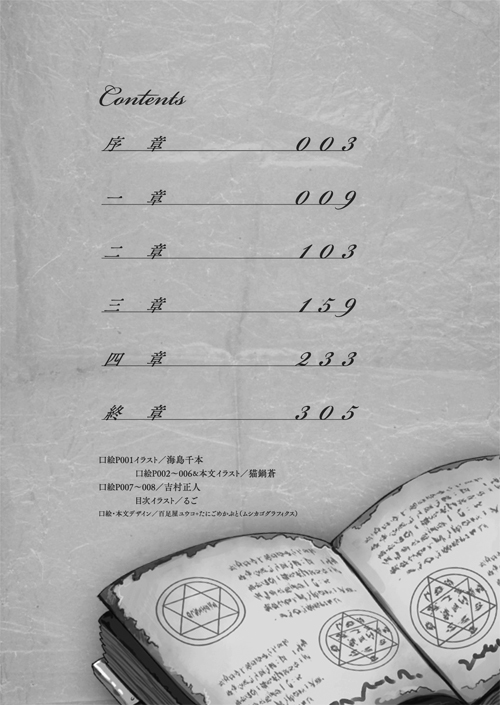 Contents
序章 003
一章 009
二章 103
三章 159
四章 233
終章 305
口絵P001イラスト／海島千本
口絵P002〜006&本文イラスト／猫鍋蒼
口絵P007〜008／吉村正人
目次イラスト／るご
口絵・本文デザイン／百足屋ユウコ+たにごめかぶと（ムシカゴグラフィクス）